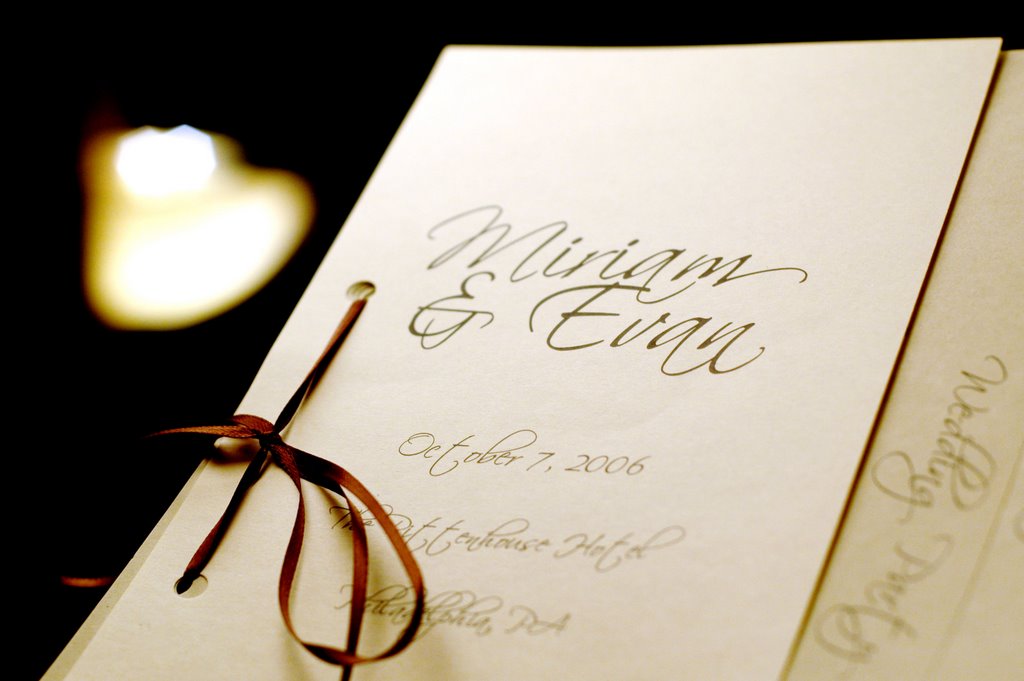 Miriam
& Evan
October 7, 2006
The Rittenhouse Hotel
Philadelphia, PA
Wedding Party